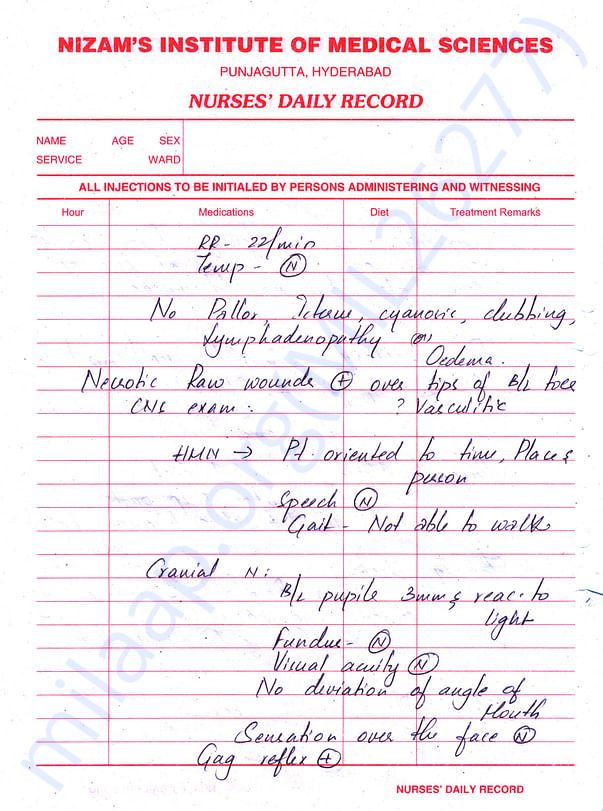 NIZAM'S INSTITUTE OF MEDICAL SCIENCES
PUNJAGUTTA, HYDERABAD
NURSES' DAILY RECORD
NAME AGE SEX
SERVICE WARD
ALL INJECTIONS TO BE INITIALED BY PERSONS ADMINISTERING AND WITNESSING
Hour Medications Diet Treatment Remarks
RR - 22/min
Temp - (N)
No Pallor, Icterus, cyanosis, clubbing,
Lymphadenopathy (or)
Oedema.
Necrotic Raw wounds (+) over tips of B/L toes
CNS exam: ? Vasculitic
HMN → Pt oriented to time, Place &
person
Speech (N)
Gait - Not able to walk
Cranial N:
B/L pupils 3mm & reac. to
light
Fundus - (N)
Visual acuity (N)
No deviation of angle of
Mouth
Sensation over the face (N)
Gag reflex (+)
NURSES' DAILY RECORD
milaap.org(MIL26277)